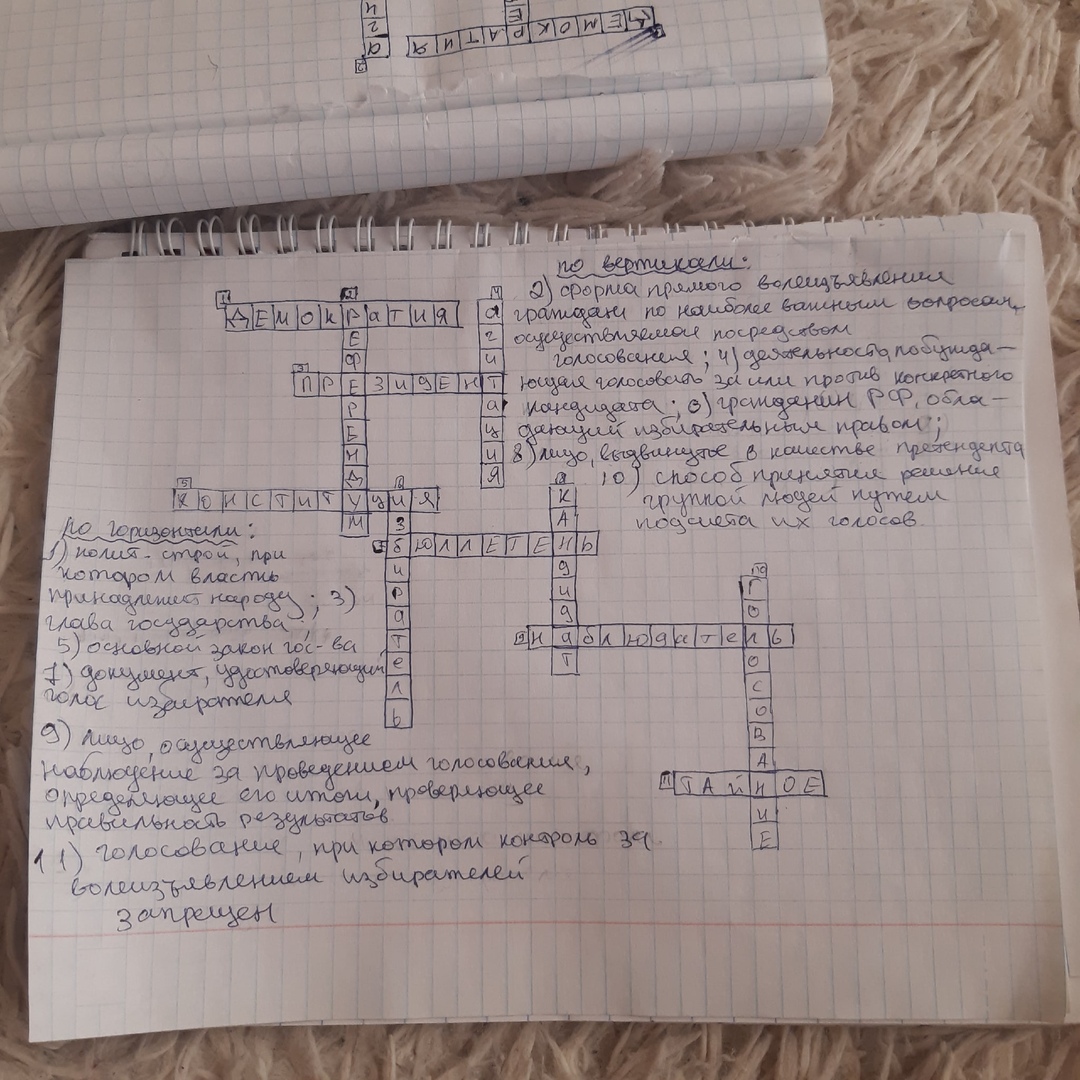 ДЕМОКРАТИЯ
по вертикали:
2) форма прямого волеизъявления
граждан по наиболее важным вопросам,
осуществляемая посредством
голосования; 4) деятельность, побужда-
ющая голосовать за или против конкретного
кандидата; 6) гражданин РФ, обла-
дающий избирательным правом;
8) лицо, выдвинутое в качестве претендента
10) способ принятия решения
группой людей путем
подсчета их голосов.
1 ДЕМОКРАТИЯ
2 РЕФЕРЕНДУМ
3 ПРЕЗИДЕНТ
4 агитация
5 КОНСТИТУЦИЯ
избиратель
бЮЛЛЕТЕНЬ
КАНдидаТ
9 наблюдатель
10 ГОЛОСОВАНИЕ
11 ТАЙНОЕ
по горизонтали:
1) полит- строй, при
котором власть
принадлежит народу; 3)
глава государства
5) основной закон гос-ва
7) документ, удостоверяющий
голос избирателя
9) лицо, осуществляющее
наблюдение за проведением голосования,
определяющее его итоги, проверяющее
правильность результатов
11) голосование, при котором контроль за
волеизъявлением избирателей
запрещен